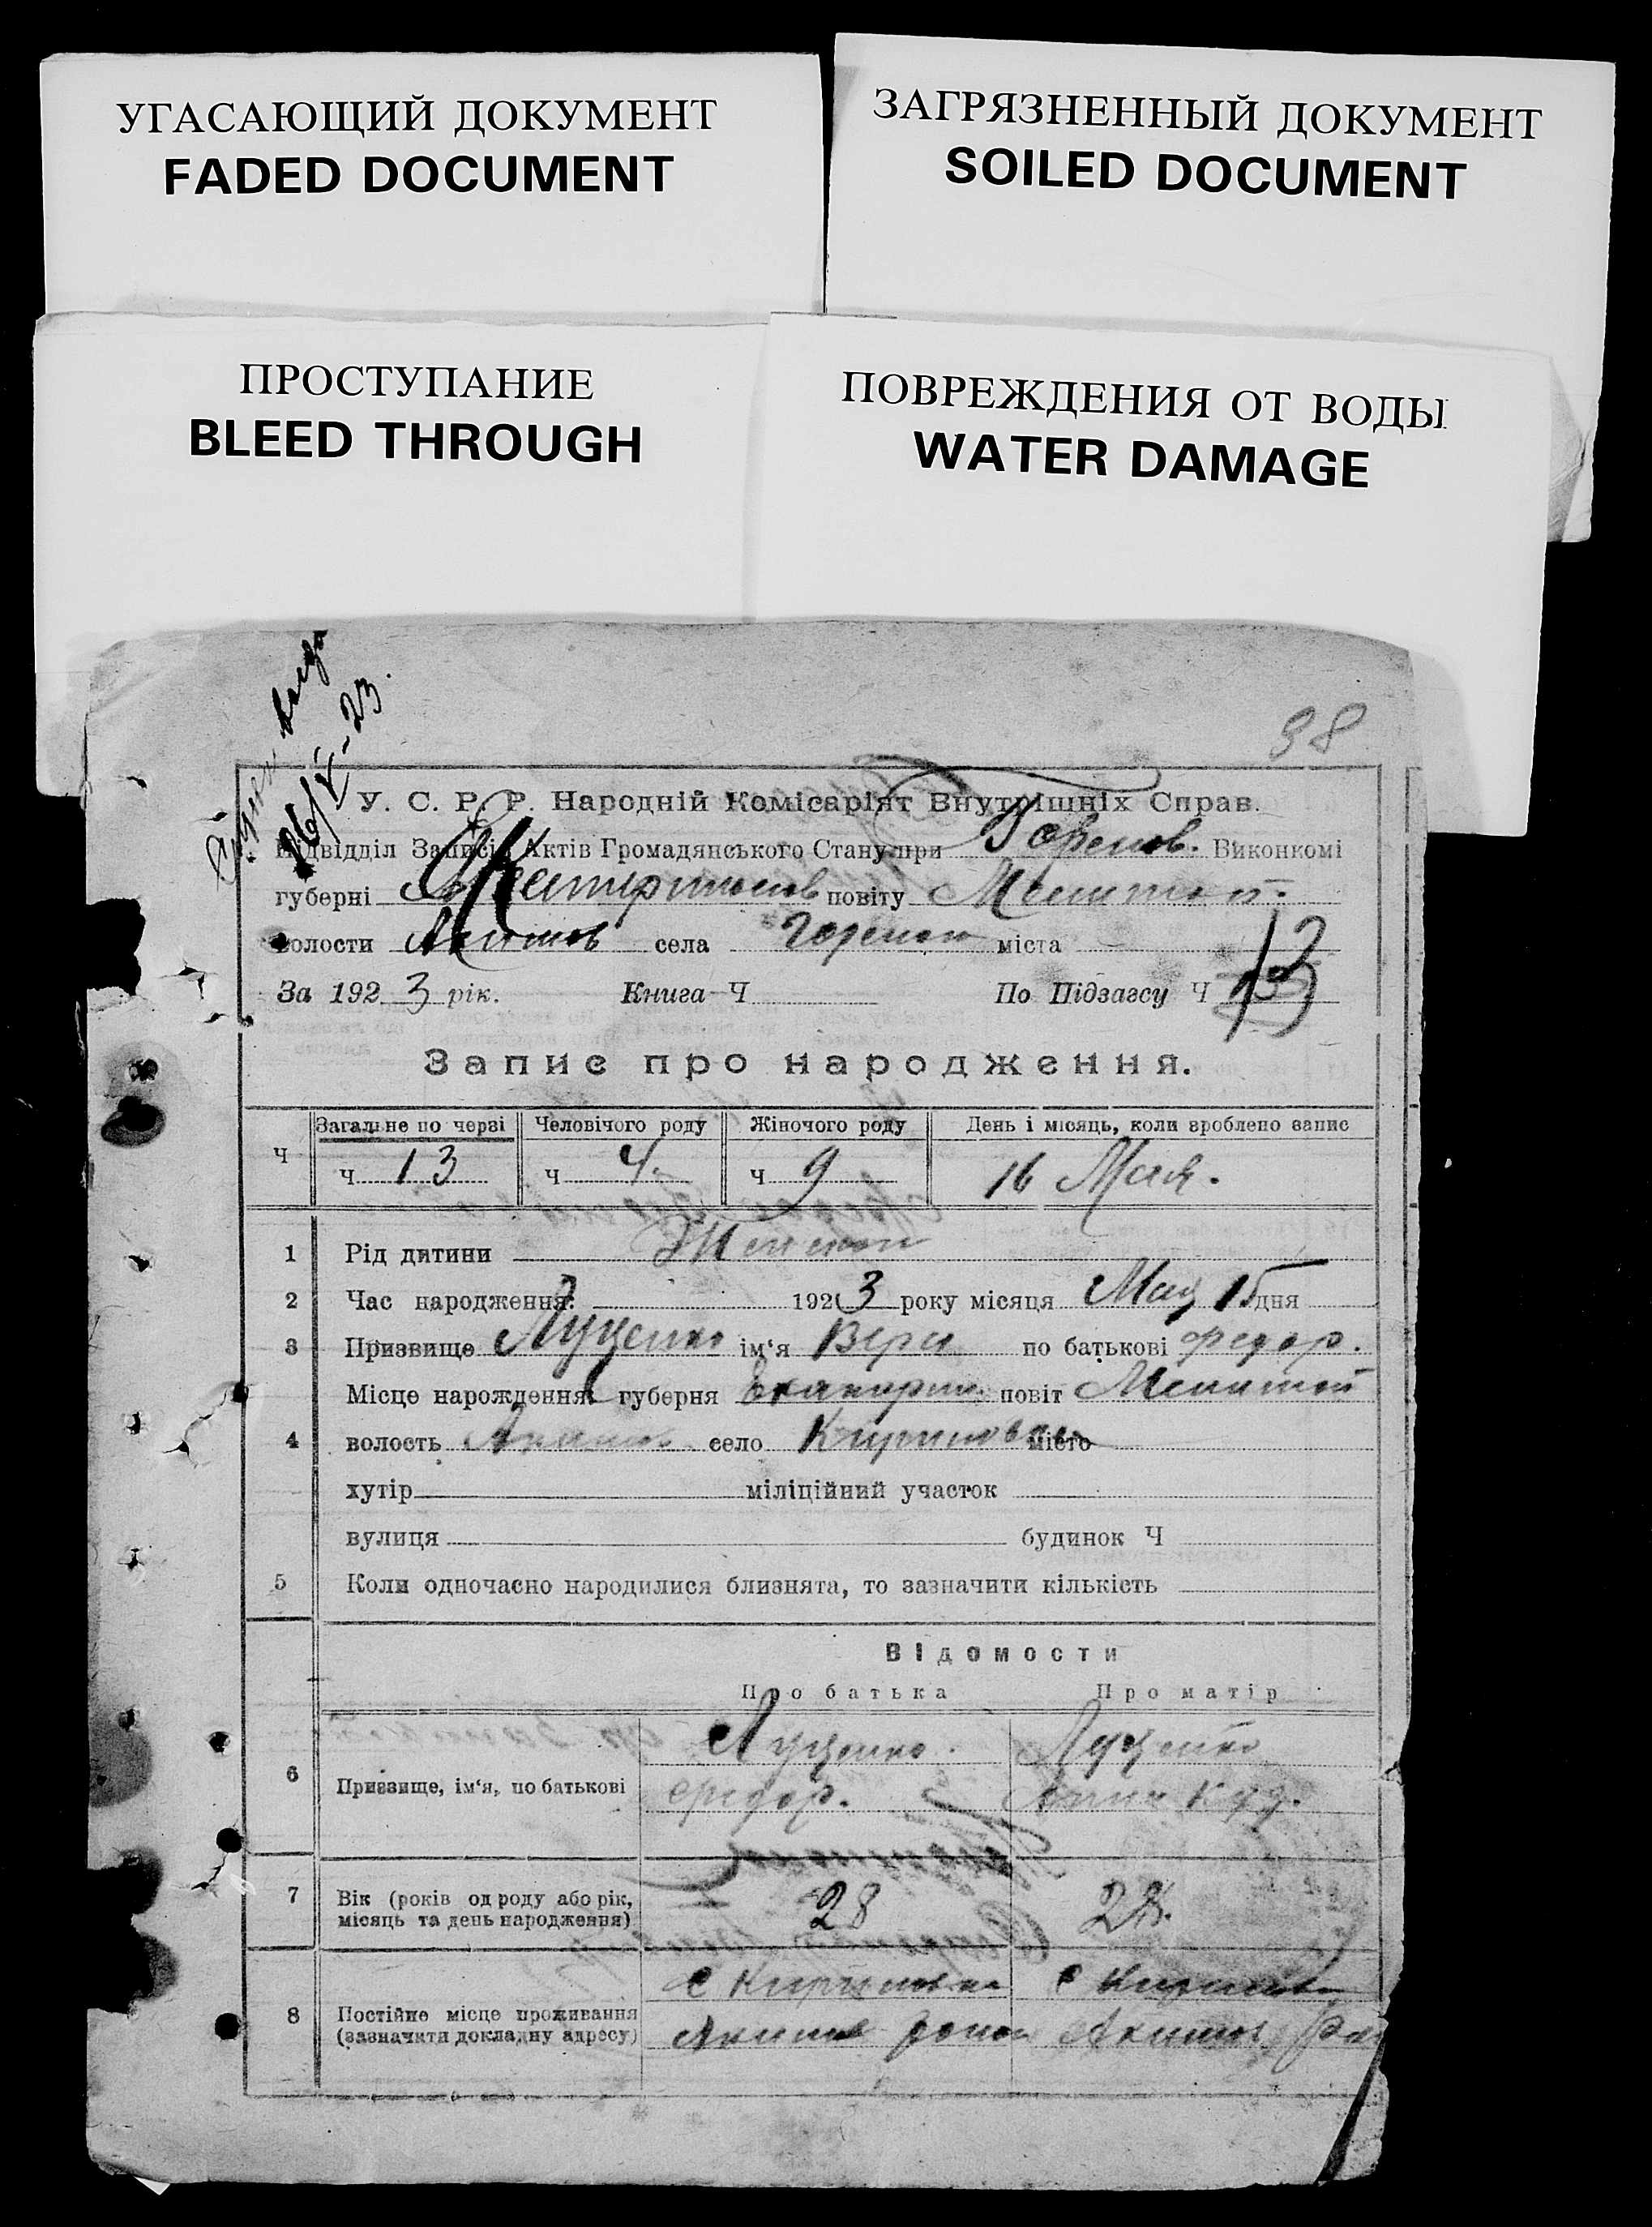 УГАСАЮЩИЙ ДОКУМЕНТ
FADED DOCUMENT
ЗАГРЯЗНЕННЫЙ ДОКУМЕНТ
SOILED DOCUMENT
ПРОСТУПАНИЕ
BLEED THROUGH
ПОВРЕЖДЕНИЯ ОТ ВОДЫ
WATER DAMAGE
98
16/V-23.
У. С. Р. Р. Народній Комісаріят Внутрішніх Справ.
Підвідділ Записів Актів Громадянського Стану при Виконкомі
губерні повіту Мелитоп.
волости Акимов села міста
За 1923 рік. Книга Ч По Підзагсу Ч 13
Запис про народження.
Ч Загальне по черзі Человічого роду Жіночого роду День і місяць, коли зроблено запис
ч 13 ч 4 ч 9 16 Мая.
1 Рід дитини Женский
2 Час народження: 1923 року місяця Мая 15 дня
3 Призвище Луценко ім‘я Вера по батькові Федор.
Місце народження: губерня Екатерин. повіт Мелитоп
4 волость Акимов село Кирилловка місто
хутір міліційний участок
вулиця будинок Ч
5 Коли одночасно народилися близнята, то зазначити кількість
Відомости
Про батька Про матір
6 Призвище, ім‘я, по батькові Луценко. Луценко
Федор. Анна
7 Вік (років од роду або рік, місяць та день народження) 28
8 Постійне місце проживання (зазначити докладну адресу) с Кирилловка с Кириловк
Акимов район Акимов. Рай